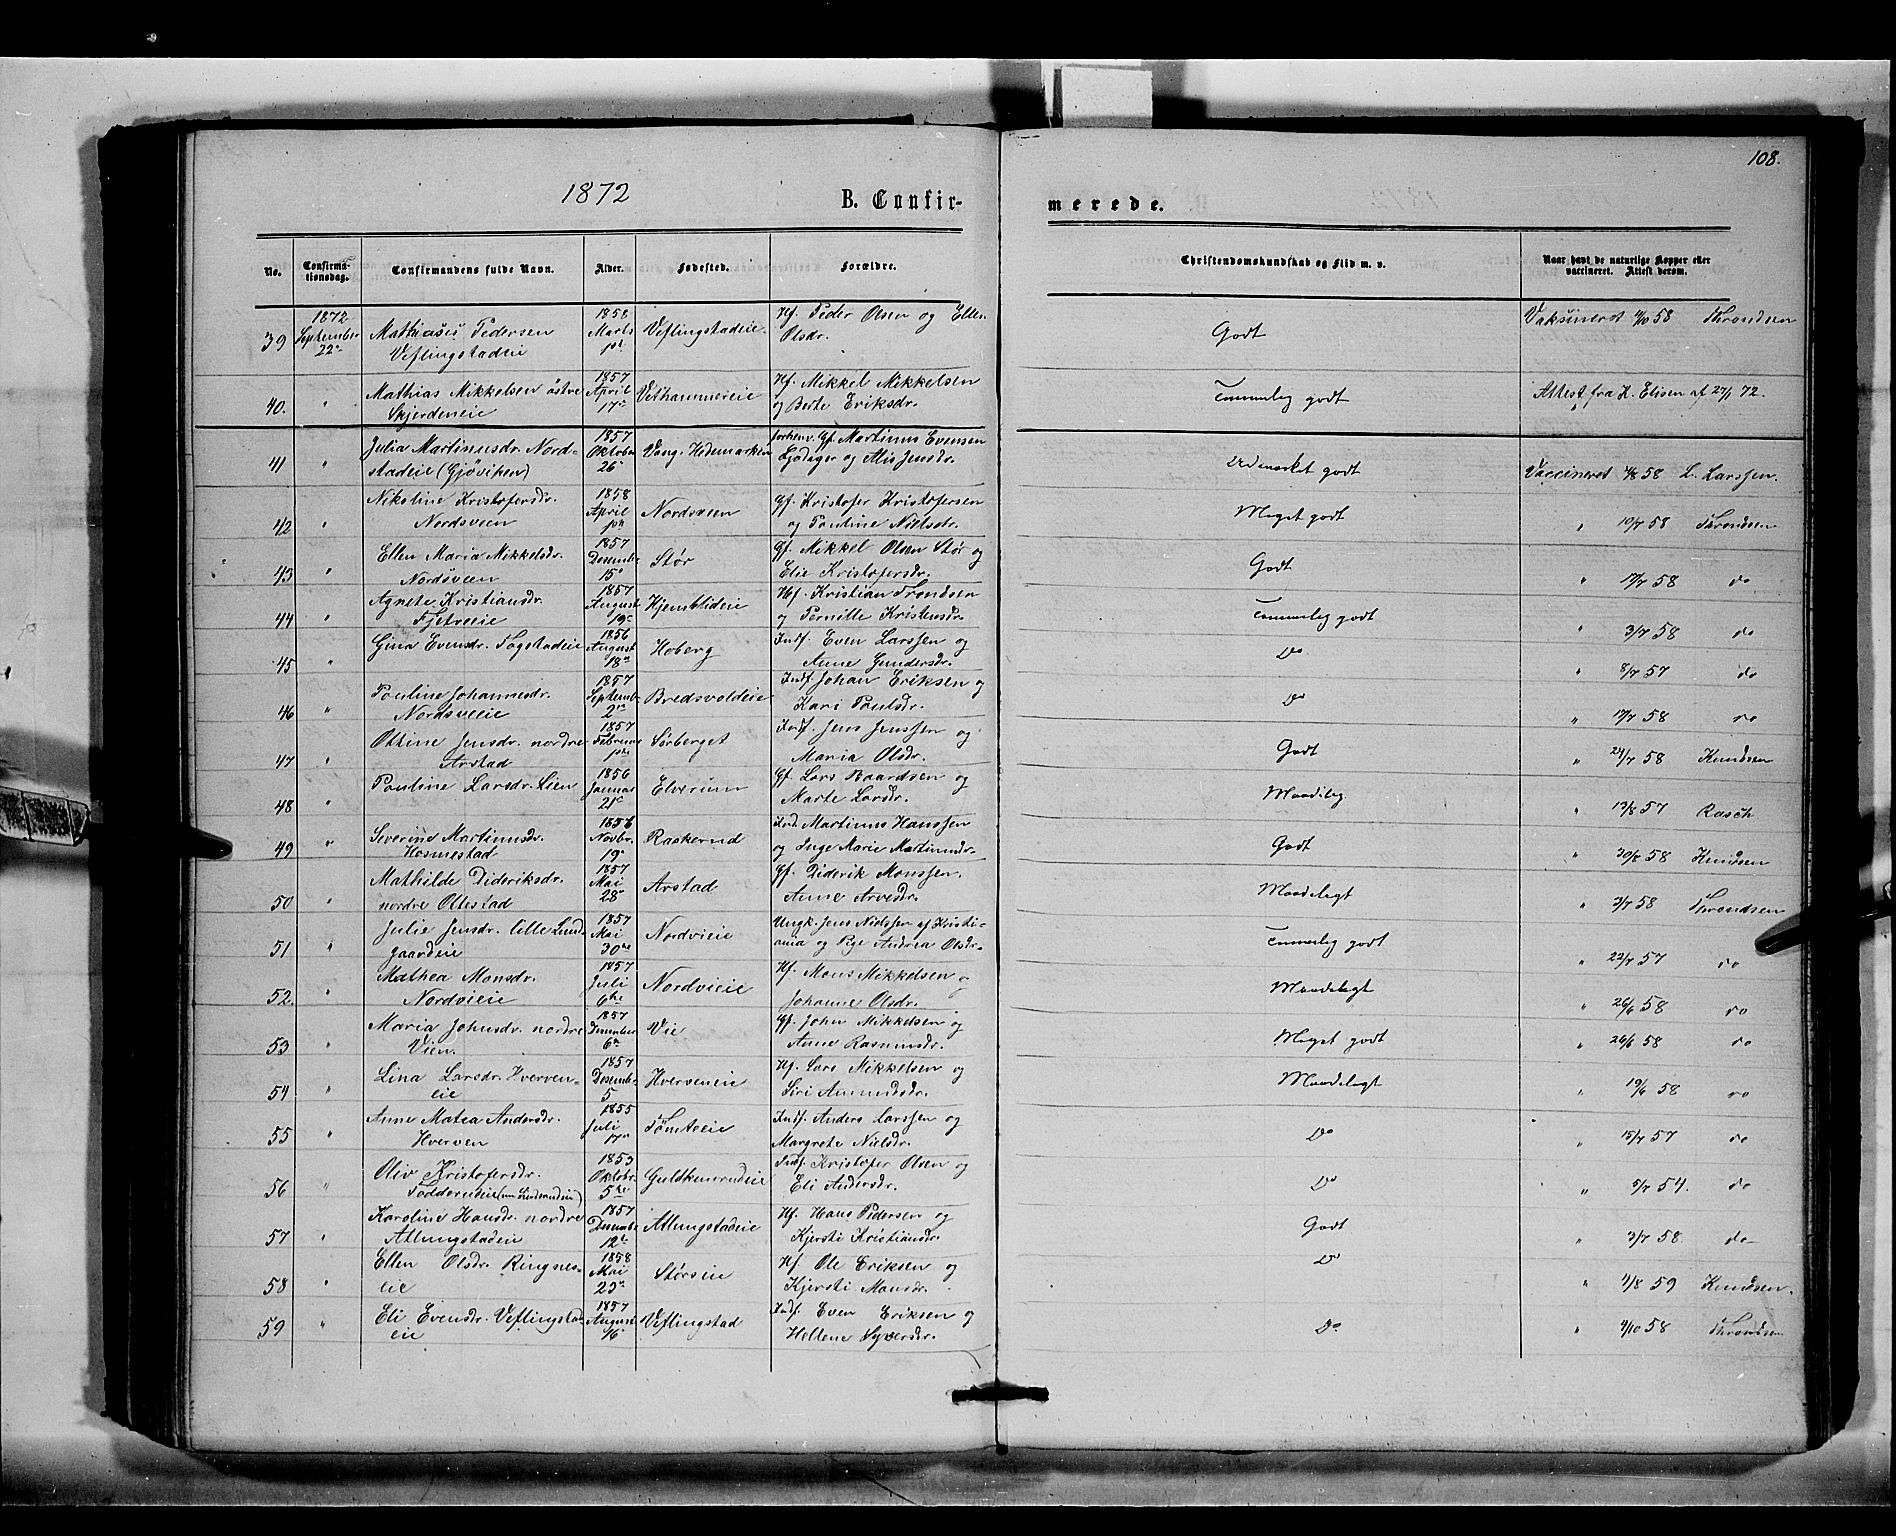 108.
1872
B. Confirmerede.
No. Confirmationsdag. Confirmandens fulde Navn. Alder. Fødested. Forældre. Christendomskundskab og Flid m. v. Naar havt de naturlige Kopper eller vaccineret. Attest derom.
39 1872 September 22 Mathias Pedersen Veflingstadeie 1858 Marts Veflingstadeie Hf. Peder Olsen og Ellen Olsdr. Godt Vaksineret 58 Throndsen
40. " Mathias Mikkelsen østre Skjerdeneie 1857 April 17 Vethammereie Hf. Mikkel Mikkelsen og Berte Eriksdr. Temmeleg godt Attest fra K. Elisen af 27/1 72.
41 " Julia Martinusdr. Nordstadeie (Gjøviken) 1857 Oktober 26 Vang. Hedemarken forhenv. Gf. Martinus Evensen og Jensdr. Udmerket godt Vaccineret 58 L. Larssen.
42 " Nikoline Kristofersdr. Nordsveen 1858 April Nordsveen Gf. Kristofer Kristofersen og Pouline Nielsdr. Meget godt " 10/7 58 Throndsen
43 " Ellen Maria Mikkelsdr. Nordsveen 1857 Desember 15 Stør Gf. Mikkel Olsen Stør og Elie Kristofersdr. Godt " 17/7 58 do
44 " Agnete Kristiansdr. Fjetreeie 1857 August 19 Hjemblideie Hf. Kristian Trondsen og Pernille Kristensdr. Temmeleg godt " 3/7 58 do
45 " Gina Evensdr. Fogstadeie 1856 August 18 Hoberg Indf. Even Larssen og Anne Gundersdr. Do " 8/7 57 do
46 " Pouline Johannesdr. Nordsveeie 1857 Septembr. 2 Bredsvoldeie Indf. Johan Eriksen og Kari Poulsdr. Do " 17/7 58 do
47 " Ottine Jensdr. nordre Arstad 1857 Februar Sørberget Indf. Jens Jenssen og Maria Olsdr. Godt " 24/7 58 Knudsen
48 " Pouline Larsdr. Lien 1856 Januar 21 Elverum Gf. Lars Baardsen og Marte Larsdr. Maadeleg " 13/8 57 Rasch
49 " Severine Martinusdr. Hosmestad 1856 Novbr. 19 Raskerud Ind. Martinus Hanssen og Inge Marie Martinusdr. Godt " 30/8 58 Knudsen
50 " Mathilde Dideriksdr. nordre Ottestad 1857 Mai 28 Arstad Gf. Diderik Monssen. Anne Arvesdr. Maadelegt " 3/7 58 Throndsen
51 " Julie Jensdr. lille Lundgaardeie 1857 Mai 30 Nordvieie Ungk. Jens Nielssen af Kristiania og Pge Andrea Olsdr. Temmeleg godt " 22/7 57 do
52. " Mathea Monsdr. Nordvieie 1857 Juli 6 Nordvieie Hf. Mons Mikkelsen og Johanne Olsdr. Maadelegt " 26/6 58 do
53 " Maria Johnsdr. nordre Vien. 1857 Desember 6 Vie Gf. John Mikkelsen og Anne Rasmusdr. Meget godt " 26/6 58 do
54 " Lina Larsdr. Hverveneie 1857 Desemb. 5 Hverveneie Hf. Lars Mikkelsen og Siri Amundsdr. Maadelegt " 19/6 58 do
55 " Anne Matea Andersdr. Hverven 1855 Juli 17 Tømteeie Indf. Anders Larssen og Margrete Nielsdr. Do " 15/7 57 do
56 " Oliv Kristofersdr. 1853 Oktobr. 5 Guldkunrudeie Indf. Kristofer Olsen og Eli Andersdr. Do " 5/7 54. do
57 " Karoline Hansdr. nordre Atlungstadeie 1857 Desembr 12 Atlungstadeie Hf. Hans Pedersen og Kjersti Kristiansdr. Godt " 3/7 58. do
58 " Ellen Olsdr. Ringneseie 1858 Mai 23 Størseie Hf Ole Eriksen og Kjersti Monsdr. Do " 59 Knudsen.
59 " Eli Evensdr. Veflingstadeie 1857 August 16 Veflingstad Indf. Even Eriksen og Hellene Syversdr. Do " 58 Throndsen